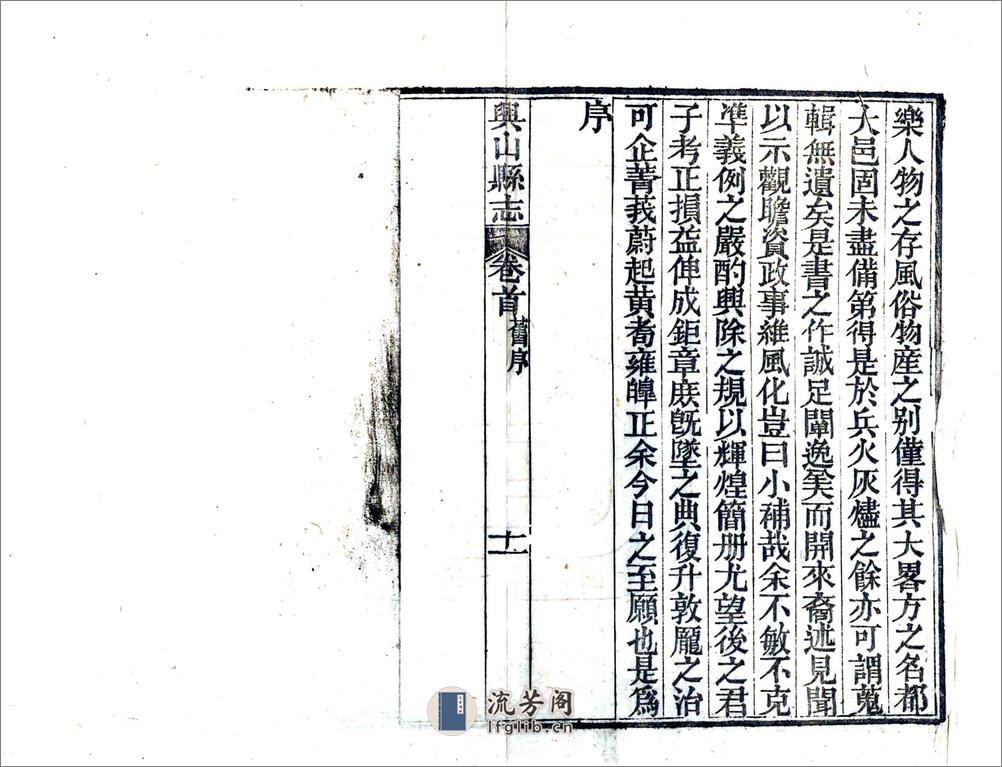 樂人物之存風俗物産之別僅得其大畧方之名都
大邑固未盡備第得是於兵火灰燼之餘亦可謂蒐
輯無遺矣是書之作誠足闡逸美而開來裔述見聞
以示觀瞻資政事維風化豈曰小補哉余不敏不克
凖義例之嚴酌興除之規以輝煌簡册尤望後之君
子考正損益俾成鉅章庶旣墜之典復升敦龐之治
可企菁莪蔚起黄耇雍皥正余今日之至願也是爲
序
興山縣志
卷首
舊序
十一
流芳阁
lfglib.cn